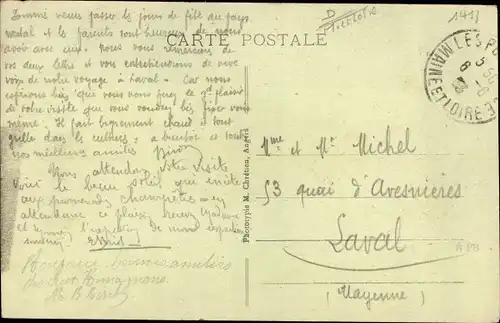 Sommes venus passer les jours de fête au pays
natal et les parents sont heureux de nous
avoir avec eux. Nous vous remercions de
vos deux lettres et vous entretiendrons de vive
voix de notre voyage à Laval. Car nous
espérons bien que vous nous ferez le gd plaisir
de votre visite que vous voudrez bien fixer vous
même. Il fait bigrement chaud, tout
grille dans les cultures. à bientôt et tous
nos meilleures amitiés
Nous attendons votre visite
Voici le beau soleil qui invite
aux promenades champêtres en
attendant ce plaisir, recevez Madame
et Monsieur, l'expression de mes
bonnes amitiés
CARTE POSTALE
1418
MAINE ET LOIRE
Phototypie M. Chrétien, Angers
Mme et Mr Michel
53 quai d'Avesnières
Laval
(Mayenne)